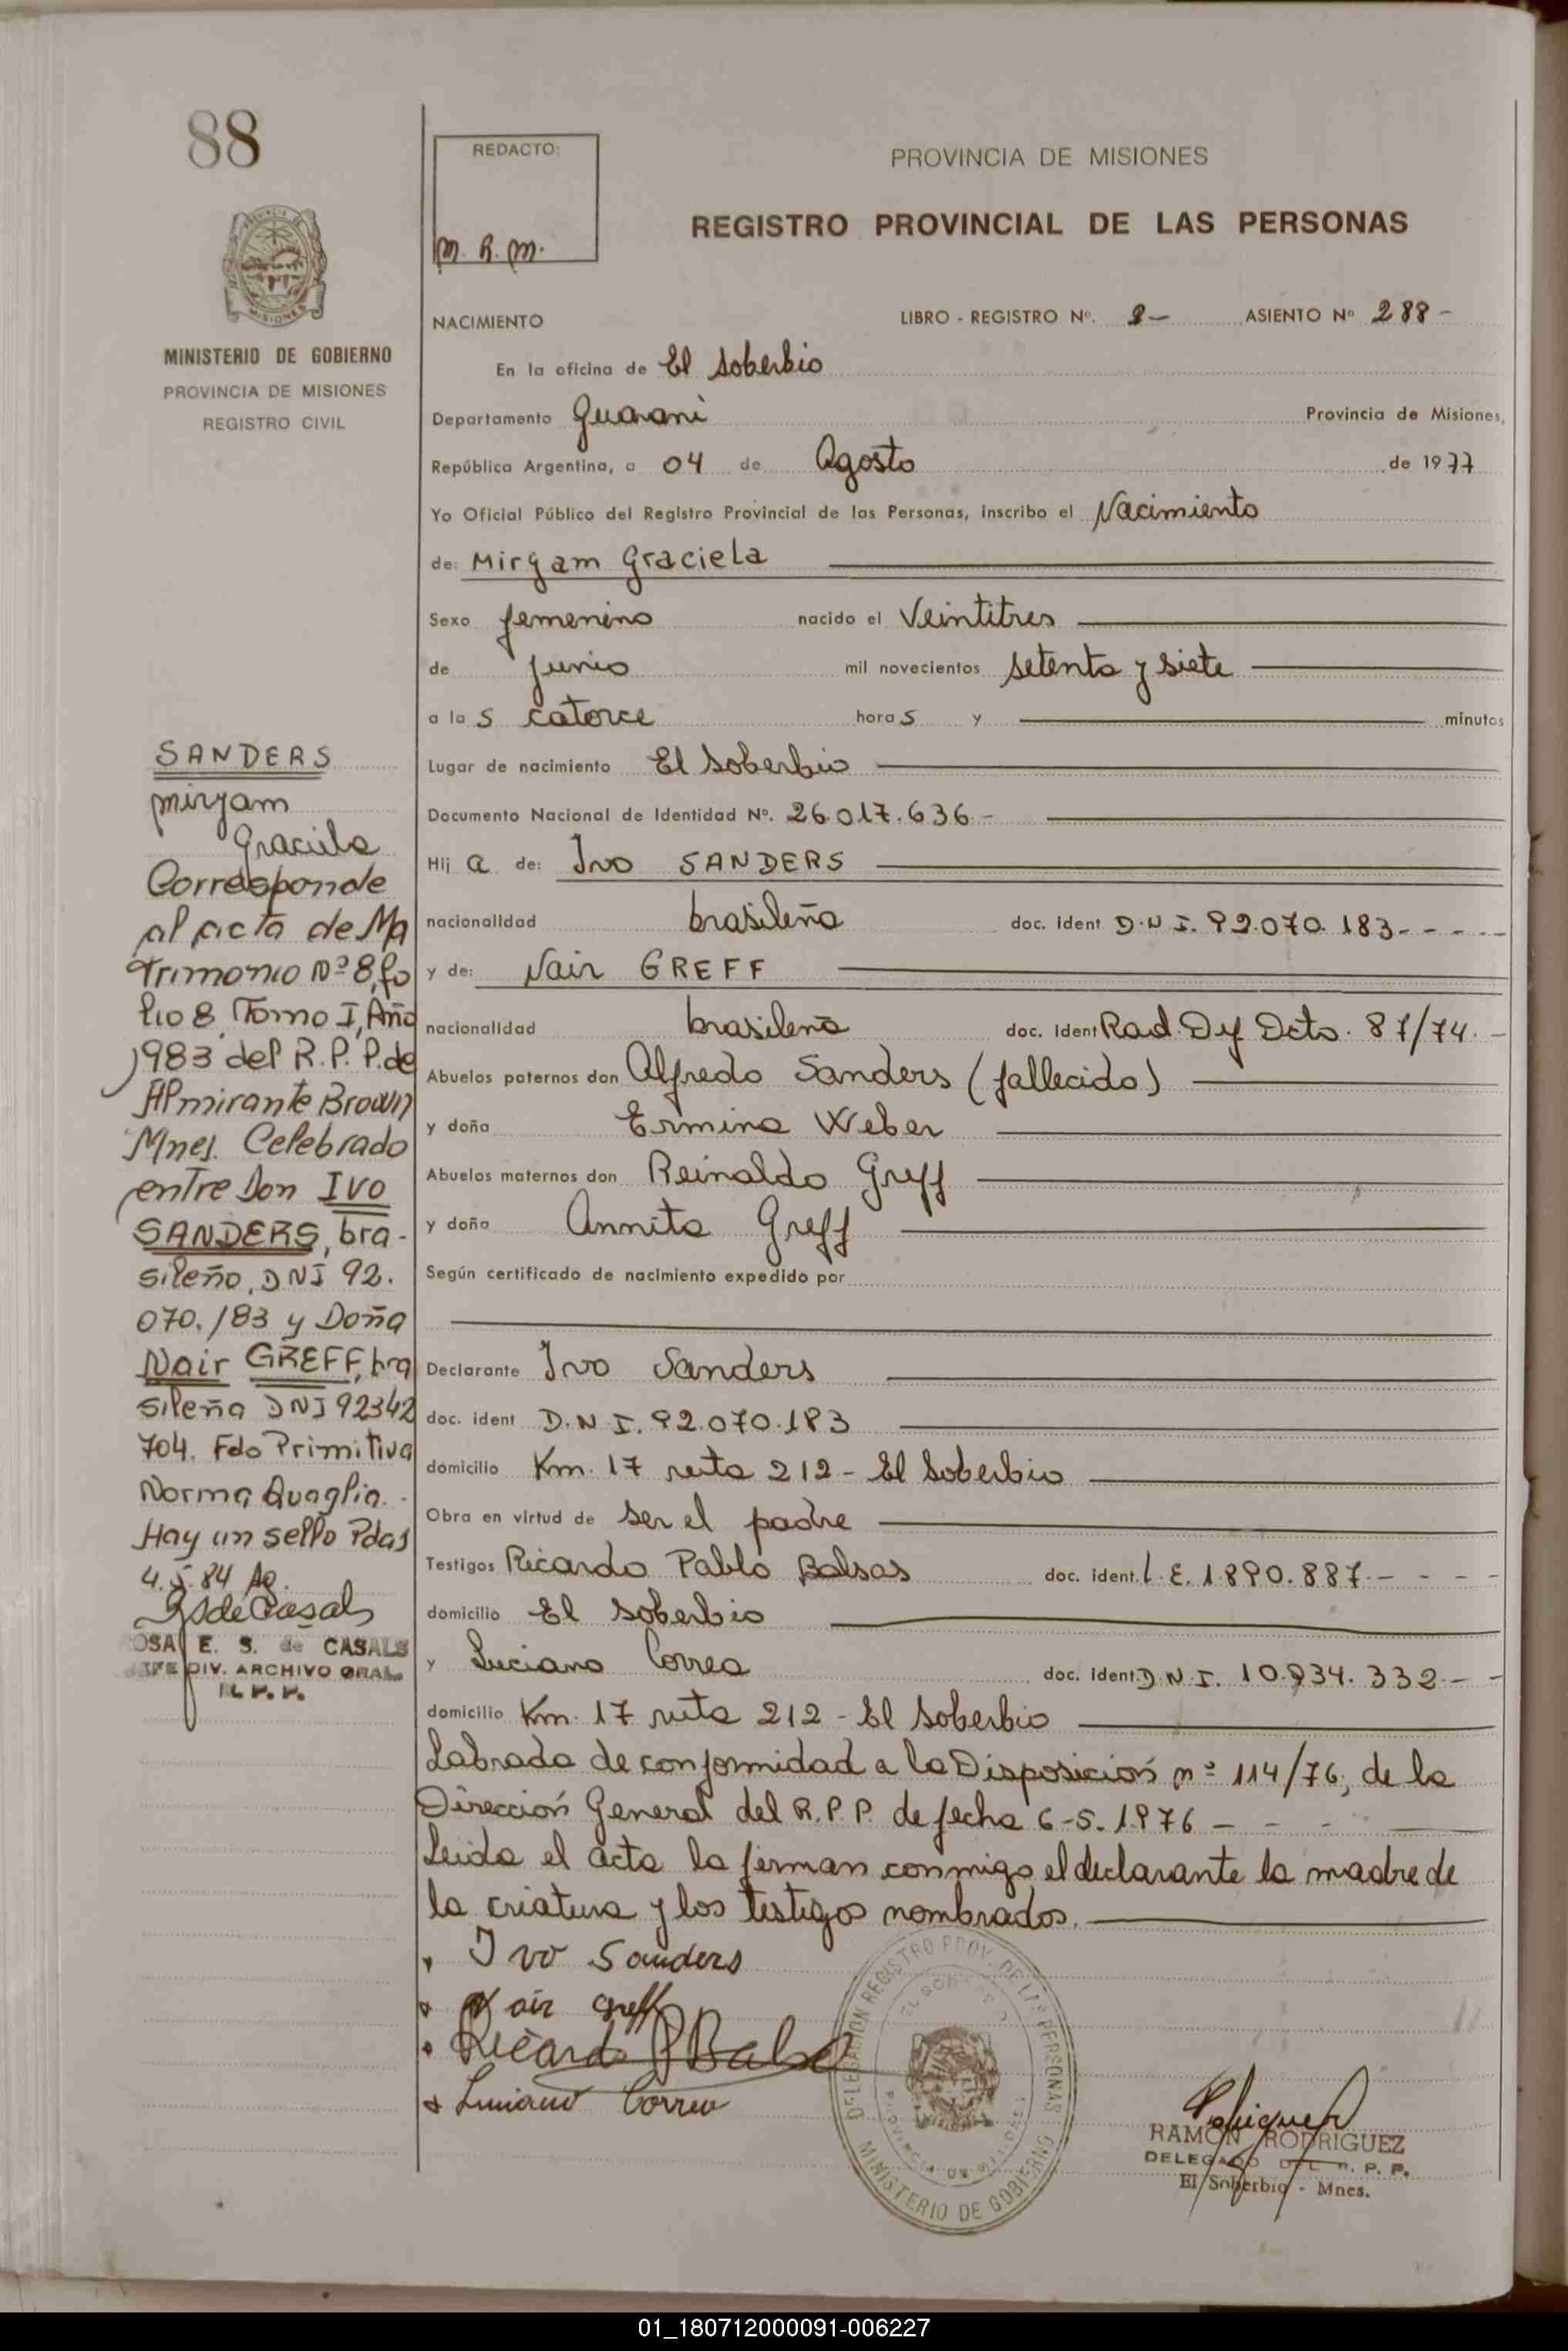 88
MINISTERIO DE GOBIERNO
PROVINCIA DE MISIONES
REGISTRO CIVIL
SANDERS
Miryam
Graciela
Corresponde
al acta de Ma
trimonio Nº 8, fo
lio 8, Tomo I, Año
1983 del R.P.P. de
Almirante Brown
Mnes. Celebrado
entre Don IVO
SANDERS, bra-
sileño, DNI 92.
070.183 y Doña
Nair GREFF, bra
sileña DNI 92342
704. Fdo Primitiva
Norma Quaglia.
Hay un sello Pdas
4.5.84
OSA E. S. de CASALS
JEFE DIV. ARCHIVO GRAL.
R. P. P.
REDACTO:
M. R. M.
PROVINCIA DE MISIONES
REGISTRO PROVINCIAL DE LAS PERSONAS
NACIMIENTO LIBRO - REGISTRO Nº. ASIENTO Nº 288 -
En la oficina de El Soberbio
Departamento Guarani Provincia de Misiones,
República Argentina, a 04 de Agosto de 1977
Yo Oficial Público del Registro Provincial de las Personas, inscribo el Nacimiento
de: Miryam Graciela
Sexo femenino nacido el Veintitres
de junio mil novecientos setenta y siete
a la s catorce hora s y minutos
Lugar de nacimiento El Soberbio
Documento Nacional de Identidad Nº. 26.017.636.-
Hij a de: Ivo SANDERS
nacionalidad brasileña doc. ident D.N.I. 92.070.183- - - - -
y de: Nair GREFF
nacionalidad brasileña doc. ident Rad. Dy Dcto. 87/74. -
Abuelos paternos don Alfredo Sanders (fallecido)
y doña Ermina Weber
Abuelos maternos don Reinaldo Greff
y doña Annita Greff
Según certificado de nacimiento expedido por
Declarante Ivo Sanders
doc. ident D.N.I. 92.070.183
domicilio Km. 17 ruta 212 - El Soberbio
Obra en virtud de ser el padre
Testigos Ricardo Pablo Balsas doc. ident. L.E. 1.890.887.- - - -
domicilio El Soberbio
y Luciano Correa doc. ident. D.N.I. 10.934.332.- -
domicilio Km. 17 ruta 212 - El Soberbio
Labrada de conformidad a la Disposición nº 114/76, de la
Dirección General del R.P.P. de fecha 6-5-1976 - - -
Leida el acta la firman conmigo el declarante la madre de
la criatura y los testigos nombrados.
Ivo Sanders
Nair Greff
Ricardo P Balsa
Luciano Correa
DELEGACION REGISTRO PROV. DE LAS PERSONAS
EL SOBERBIO
PROVINCIA DE MISIONES
MINISTERIO DE GOBIERNO
RAMON RODRIGUEZ
DELEGADO DEL R. P. P.
El Soberbio - Mnes.
01_180712000091-006227